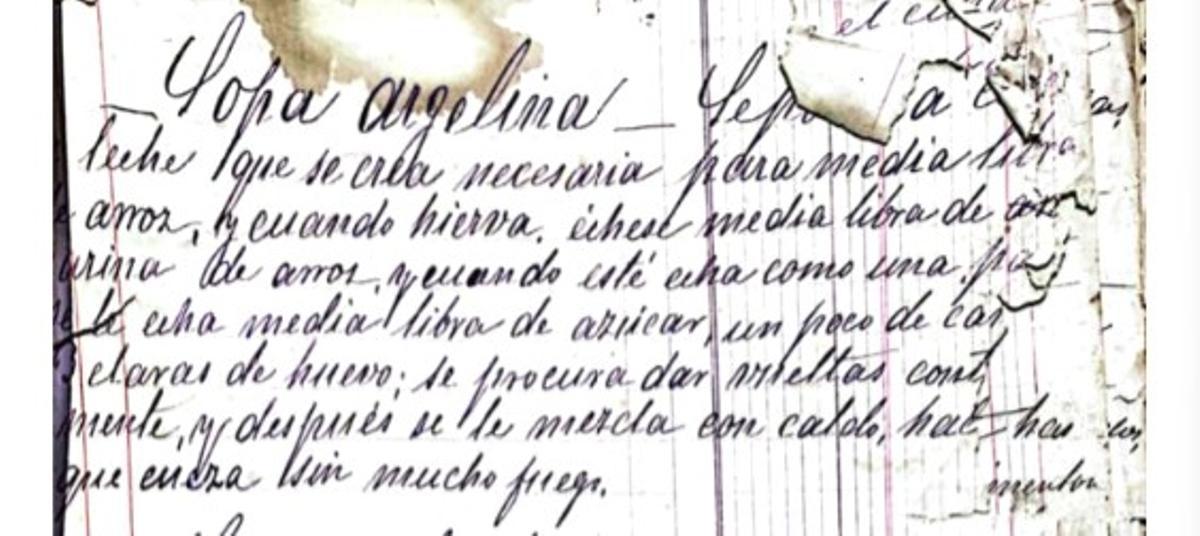 el
— Sopa Argelina — Se a
leche que se crea necesaria para media libra
arroz, y cuando hierva, échese media libra de
arina de arroz, y cuando esté echa como una
se le echa media libra de azúcar, un poco de
claras de huevo; se procura dar vueltas
mente, y después se le mezcla con caldo, has
que cueza sin mucho fuego.